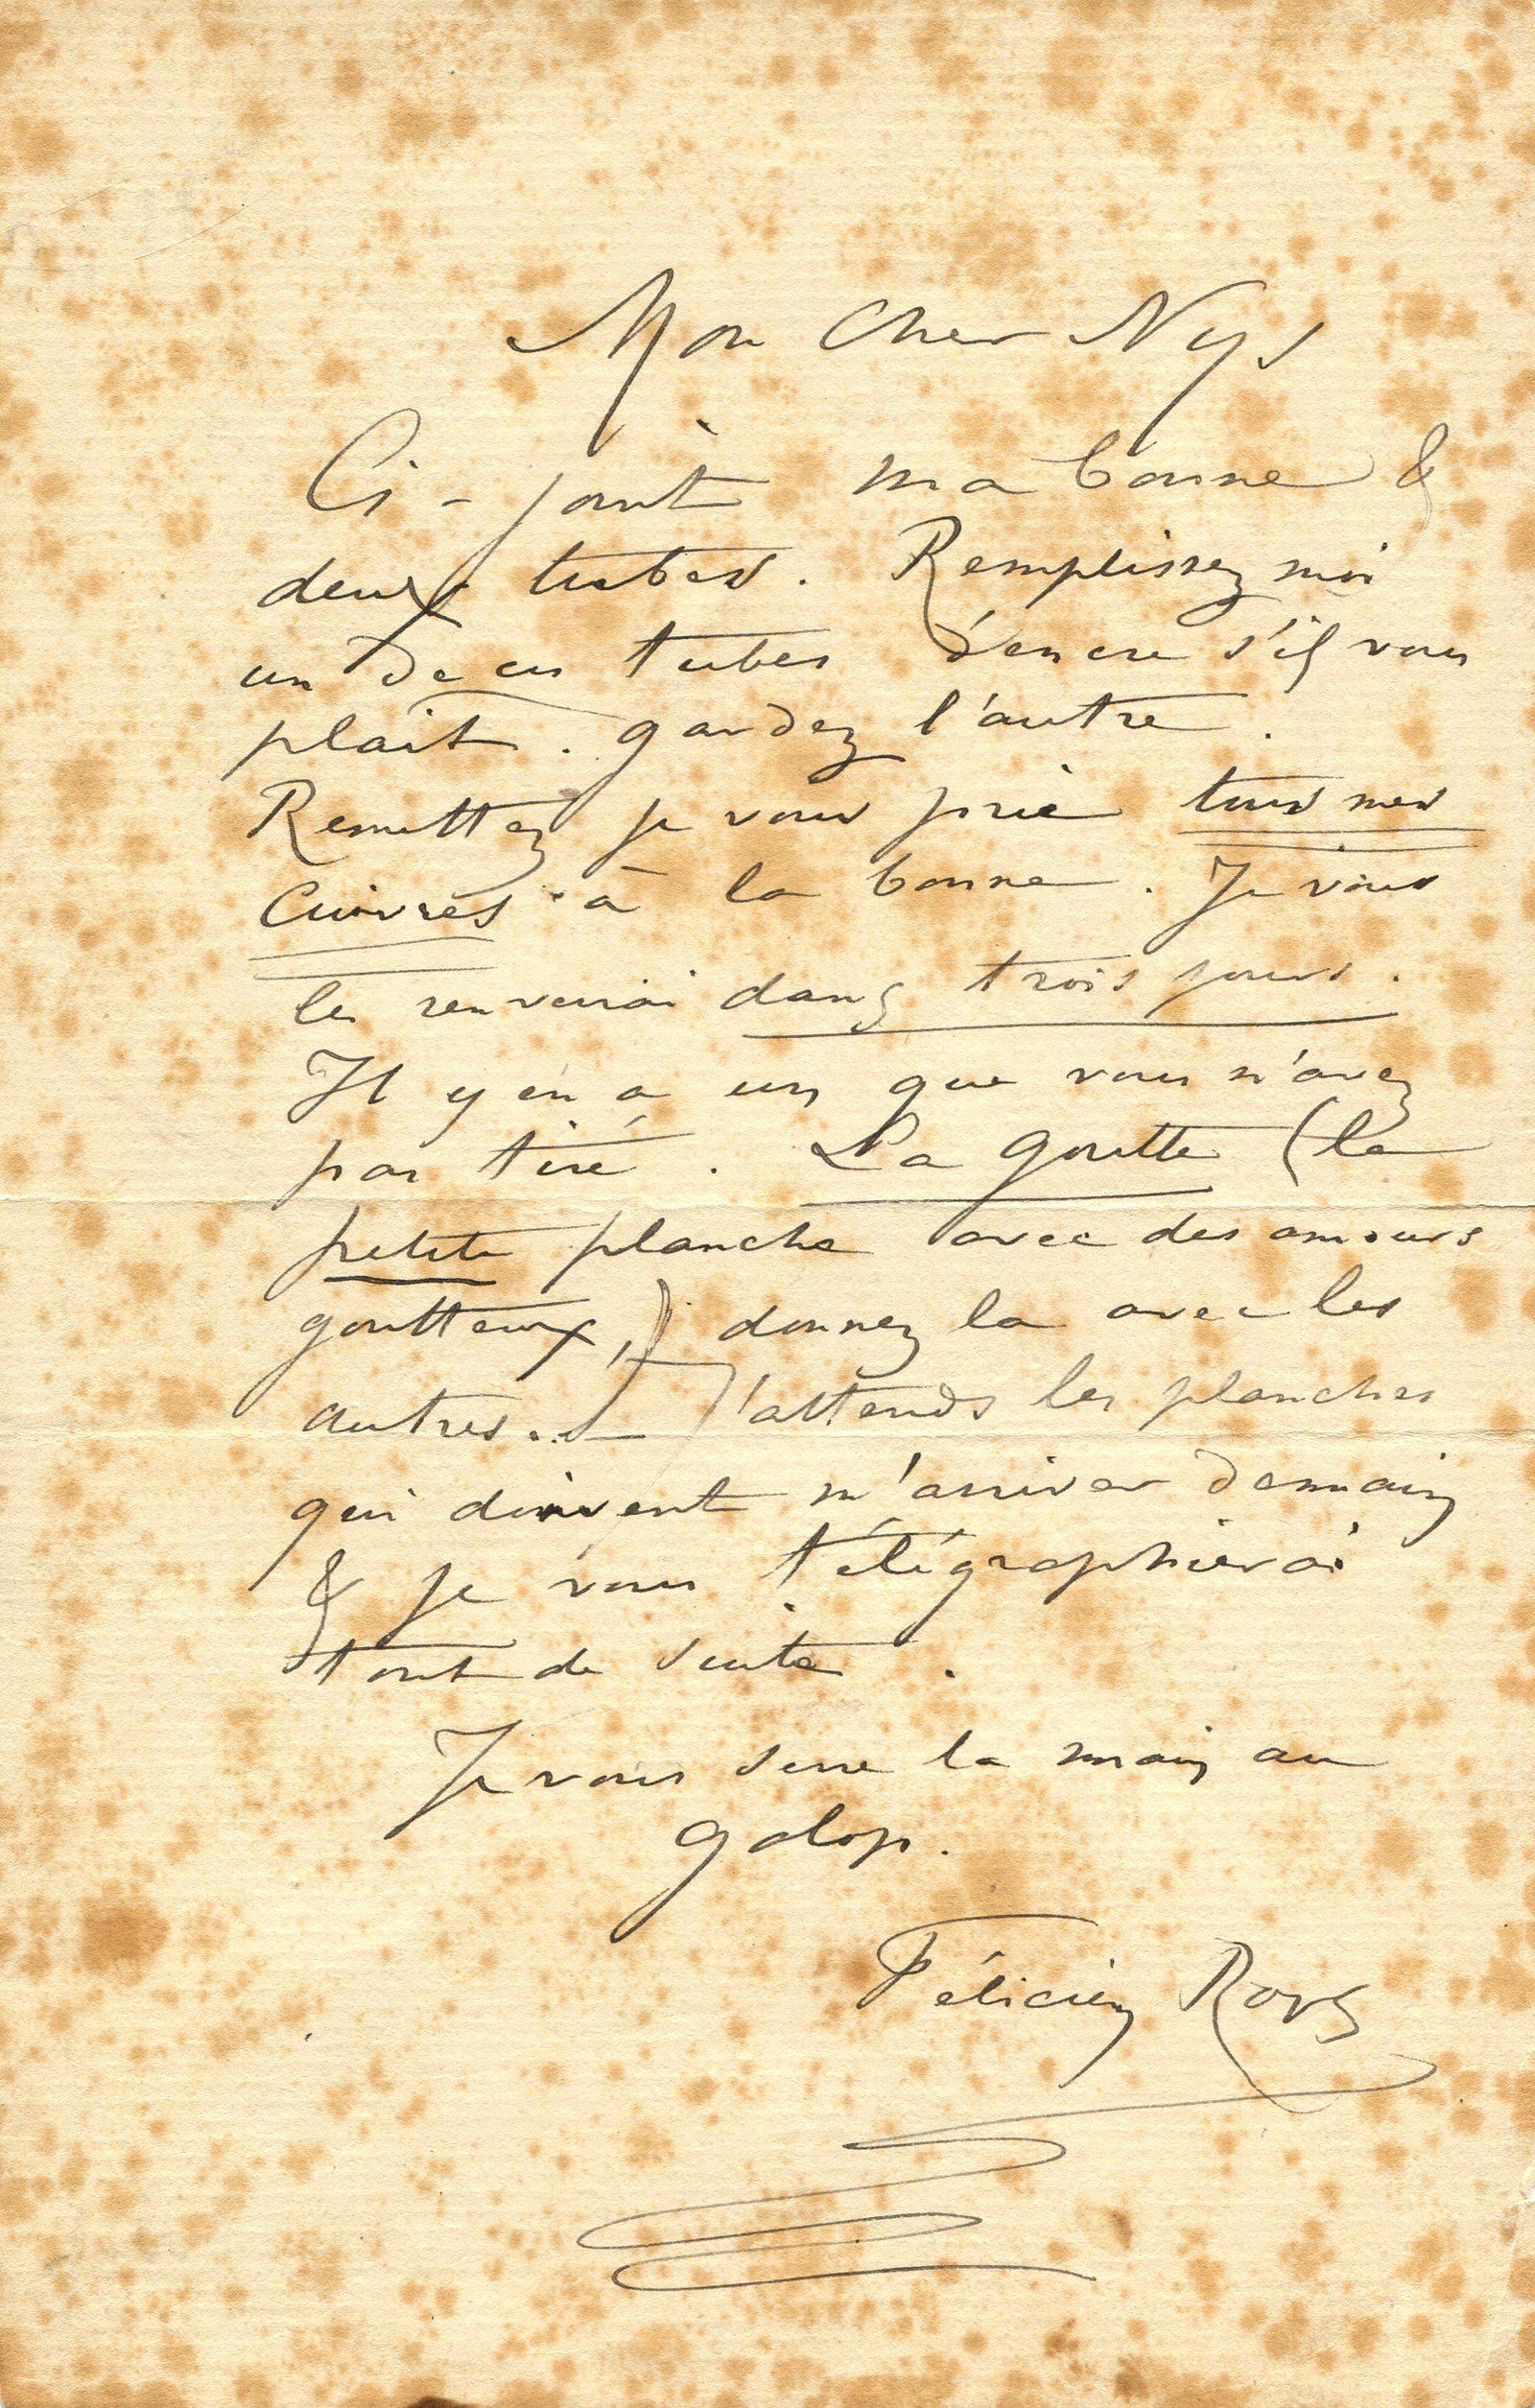 Mon cher Nys
Ci-joint ma bonne &
deux tubes. Remplissez moi
un de ces tubes d'encre s'il vous
plait. gardez l'autre.
Remettez je vous prie tous mes
Cuivres à la bonne. Je vous
les renverrai dans trois jours.
Il y en a un que vous n'avez
pas tiré. La goutte (la
petite planche avec des amours
goutteux,) donnez la avec les
autres. — J'attends les planches
qui doivent m'arriver demain
& je vous télégraphierai
tout de suite.
Je vous serre la main au
galop.
Félicien Rops